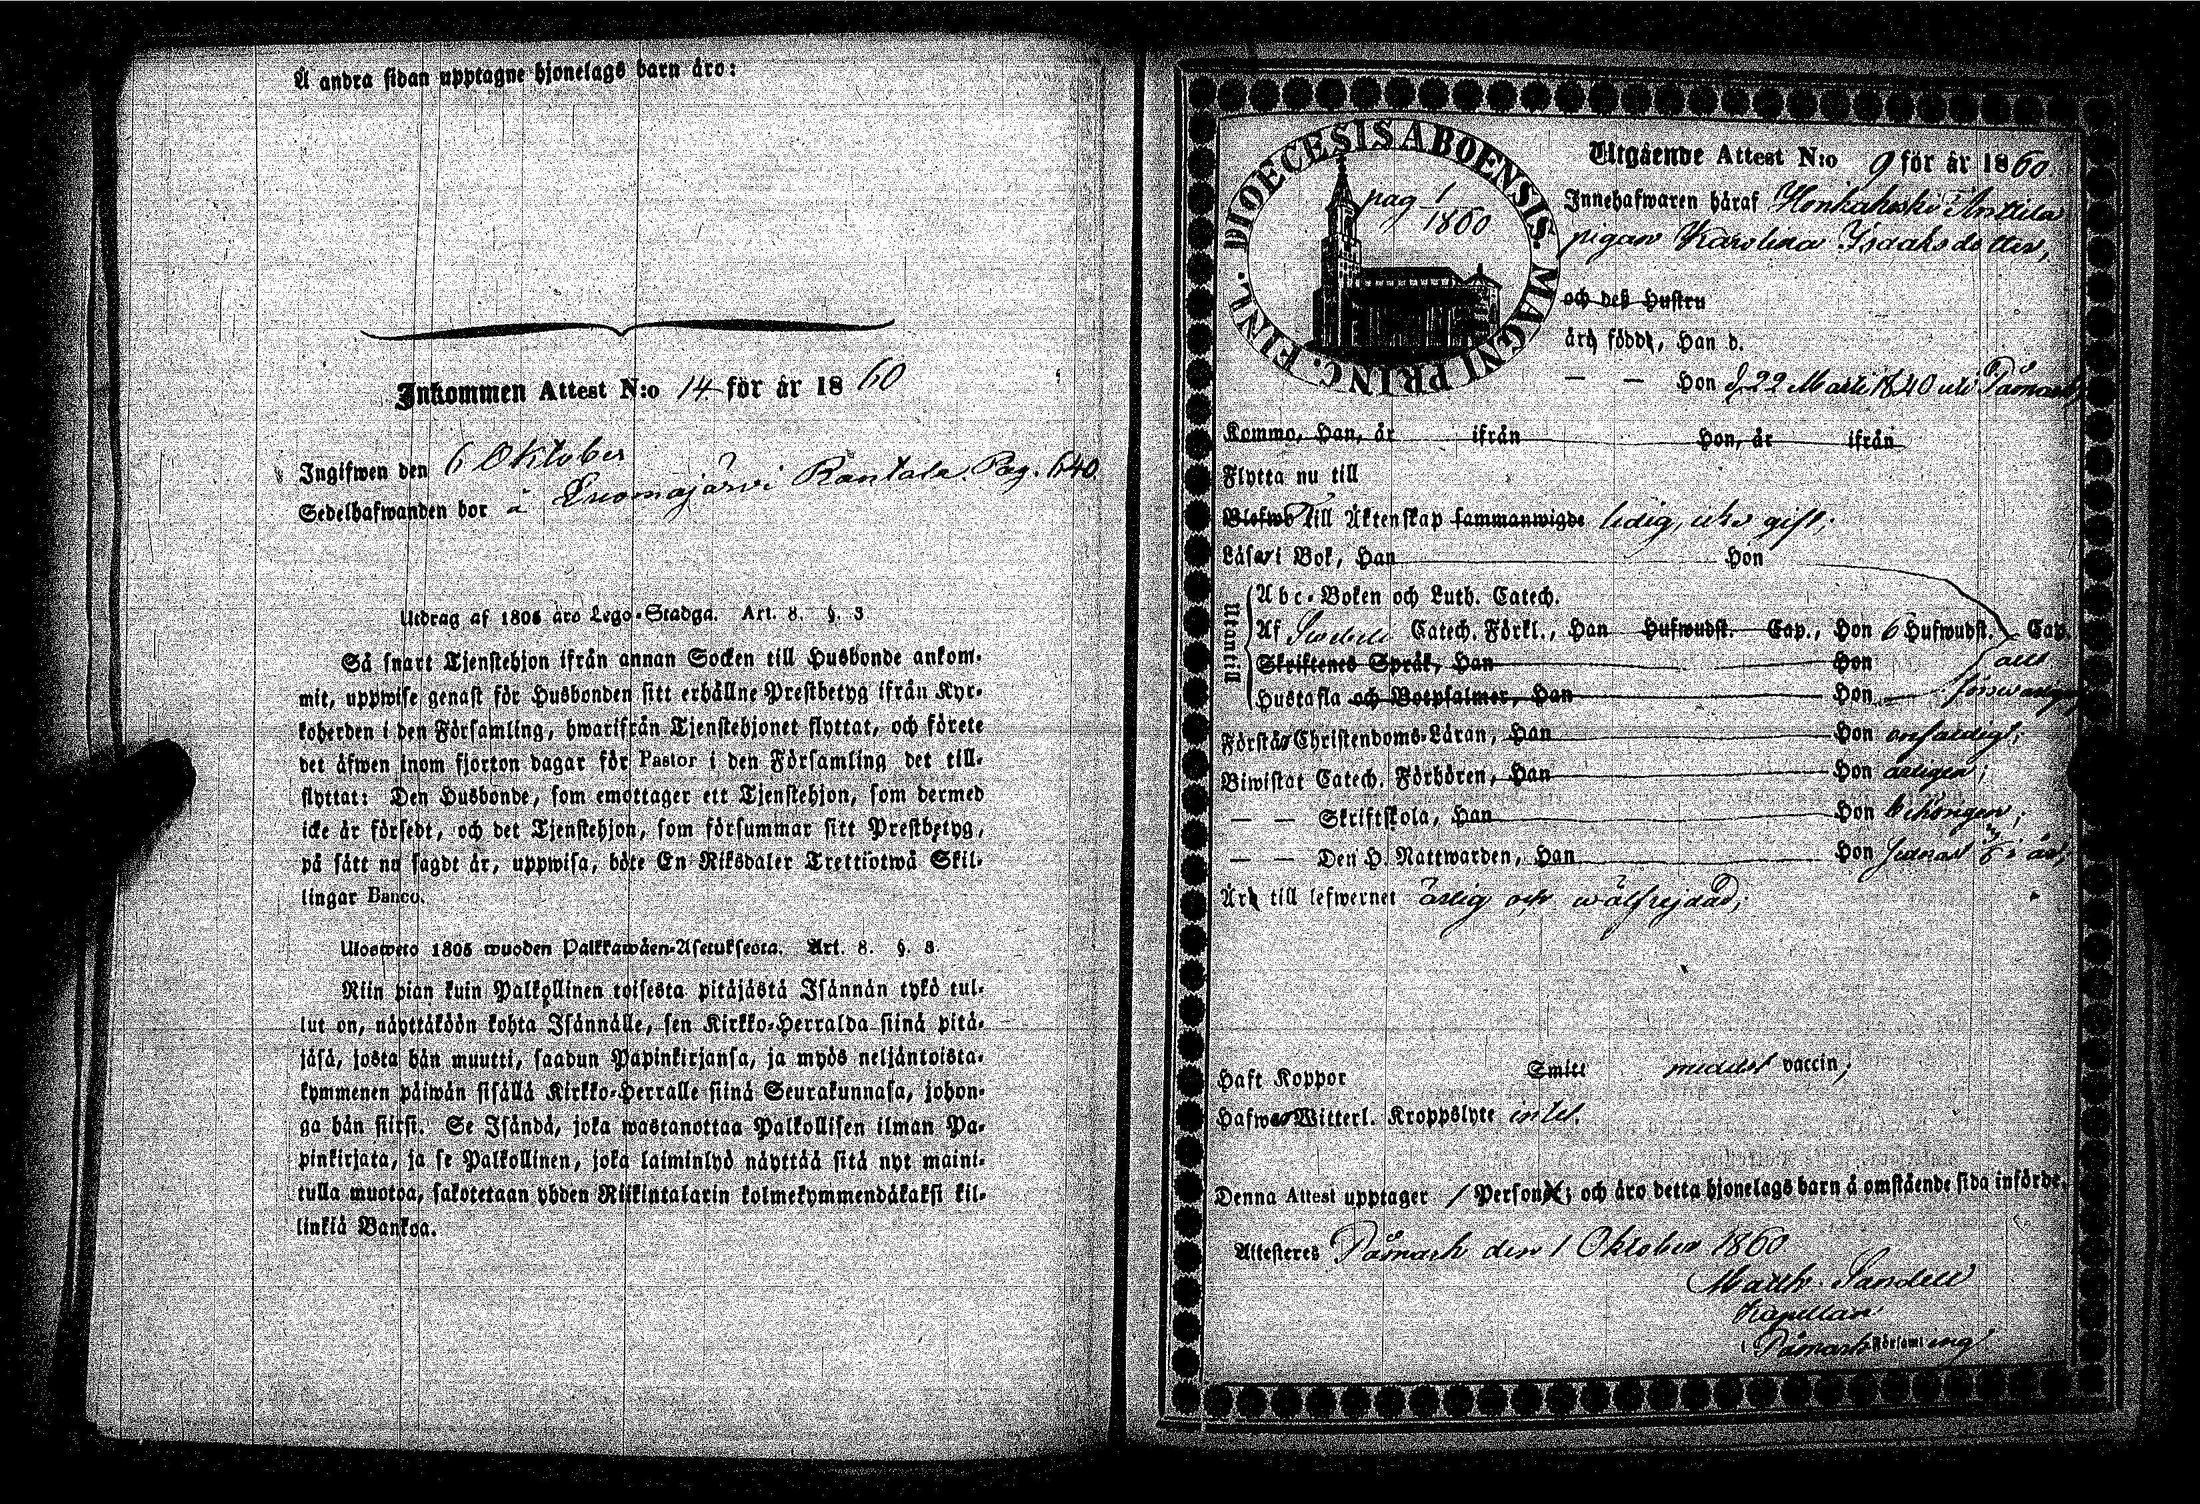 Å andra sidan upptagne hjonelags barn äro:
Inkommen Attest N:o 14 för år 1860
Ingifwen den 6 Oktober
Sedelhafwanden bor å Enomajärvi Rantala. Pag. 640.
Utdrag af 1805 års Lego-Stadga. Art. 8. §. 3
Så snart Tjenstehjon ifrån annan Socken till Husbonde ankom-
mit, uppwise genast för Husbonden sitt erhållne Prestbetyg ifrån Kyr-
koherden i den Församling, hwarifrån Tjenstehjonet flyttat, och förete
det äfwen inom fjorton dagar för Pastor i den Församling det till-
flyttat: Den Husbonde, som emottager ett Tjenstehjon, som dermed
icke är försedt, och det Tjenstehjon, som försummar sitt Prestbetyg,
på sätt nu sagdt är, uppwisa, böte En Riksdaler Trettiotwå Skil-
lingar Banco.
Ulosweto 1805 wuoden Palkkawäen-Asetuksesta. Art. 8. §. 3.
Niin pian kuin Palkollinen toisesta pitäjästä Isännän tykö tul-
lut on, näyttäköön kohta Isännälle, sen Kirkko-Herralda siinä pitä-
jäsä, josta hän muutti, saadun Papinkirjansa, ja myös neljäntoista-
kymmenen päiwän sisällä Kirkko-Herralle siinä Seurakunnasa, johon-
ga hän siirsi. Se Isändä, joka wastanottaa Palkollisen ilman Pa-
pinkirjata, ja se Palkollinen, joka laiminlyö näyttää sitä nyt maini-
tulla muotoa, sakotetaan yhden Riikintalarin kolmekymmendäkaksi kil-
linkiä Bankoa.
DIOECESIS ABOENSIS. MAGNI PRINC. FINL.
pag 1/1860
Utgående Attest N:o 9 för år 1860.
Innehafwaren häraf Honkakoski Anttila
pigan Karolina Isaksdotter,
och deß Hustru
äro född, Han d.
— — Hon d. 22 Marti 1840 uti Påmark;
Kommo, Han, år ifrån Hon, år ifrån
Flytta nu till
Blefwo Till Äktenskap sammanwigde ledig, icke gift;
Läser i Bok, Han Hon
Utantill
Abc-Boken och Luth. Catech.
Af Svebelii Catech. Förkl., Han Hufwudst. Cap., Hon 6 Hufwudst. Cap.
Skriftenes Språk, Han Hon allt
Hustafla och Botpsalmer, Han Hon försvarligt
Förstår Christendoms-Läran, Han Hon enfaldigt;
Biwistat Catech. Förhören, Han Hon årligen;
— — Skriftskola, Han Hon behörigen;
— — Den H. Nattwarden, Han Hon senast i år;
Är till lefwernet ärlig och wälfrejdad;
Haft Koppor Smitt medelst vaccin;
Hafwer Witterl. Kroppslyte intet.
Denna Attest upptager 1 Person; och äro detta hjonelags barn å omstående sida införde.
Attesteres Påmark den 1 Oktober 1860
Matth. Sandell
Kapellan
i Påmark Församling.